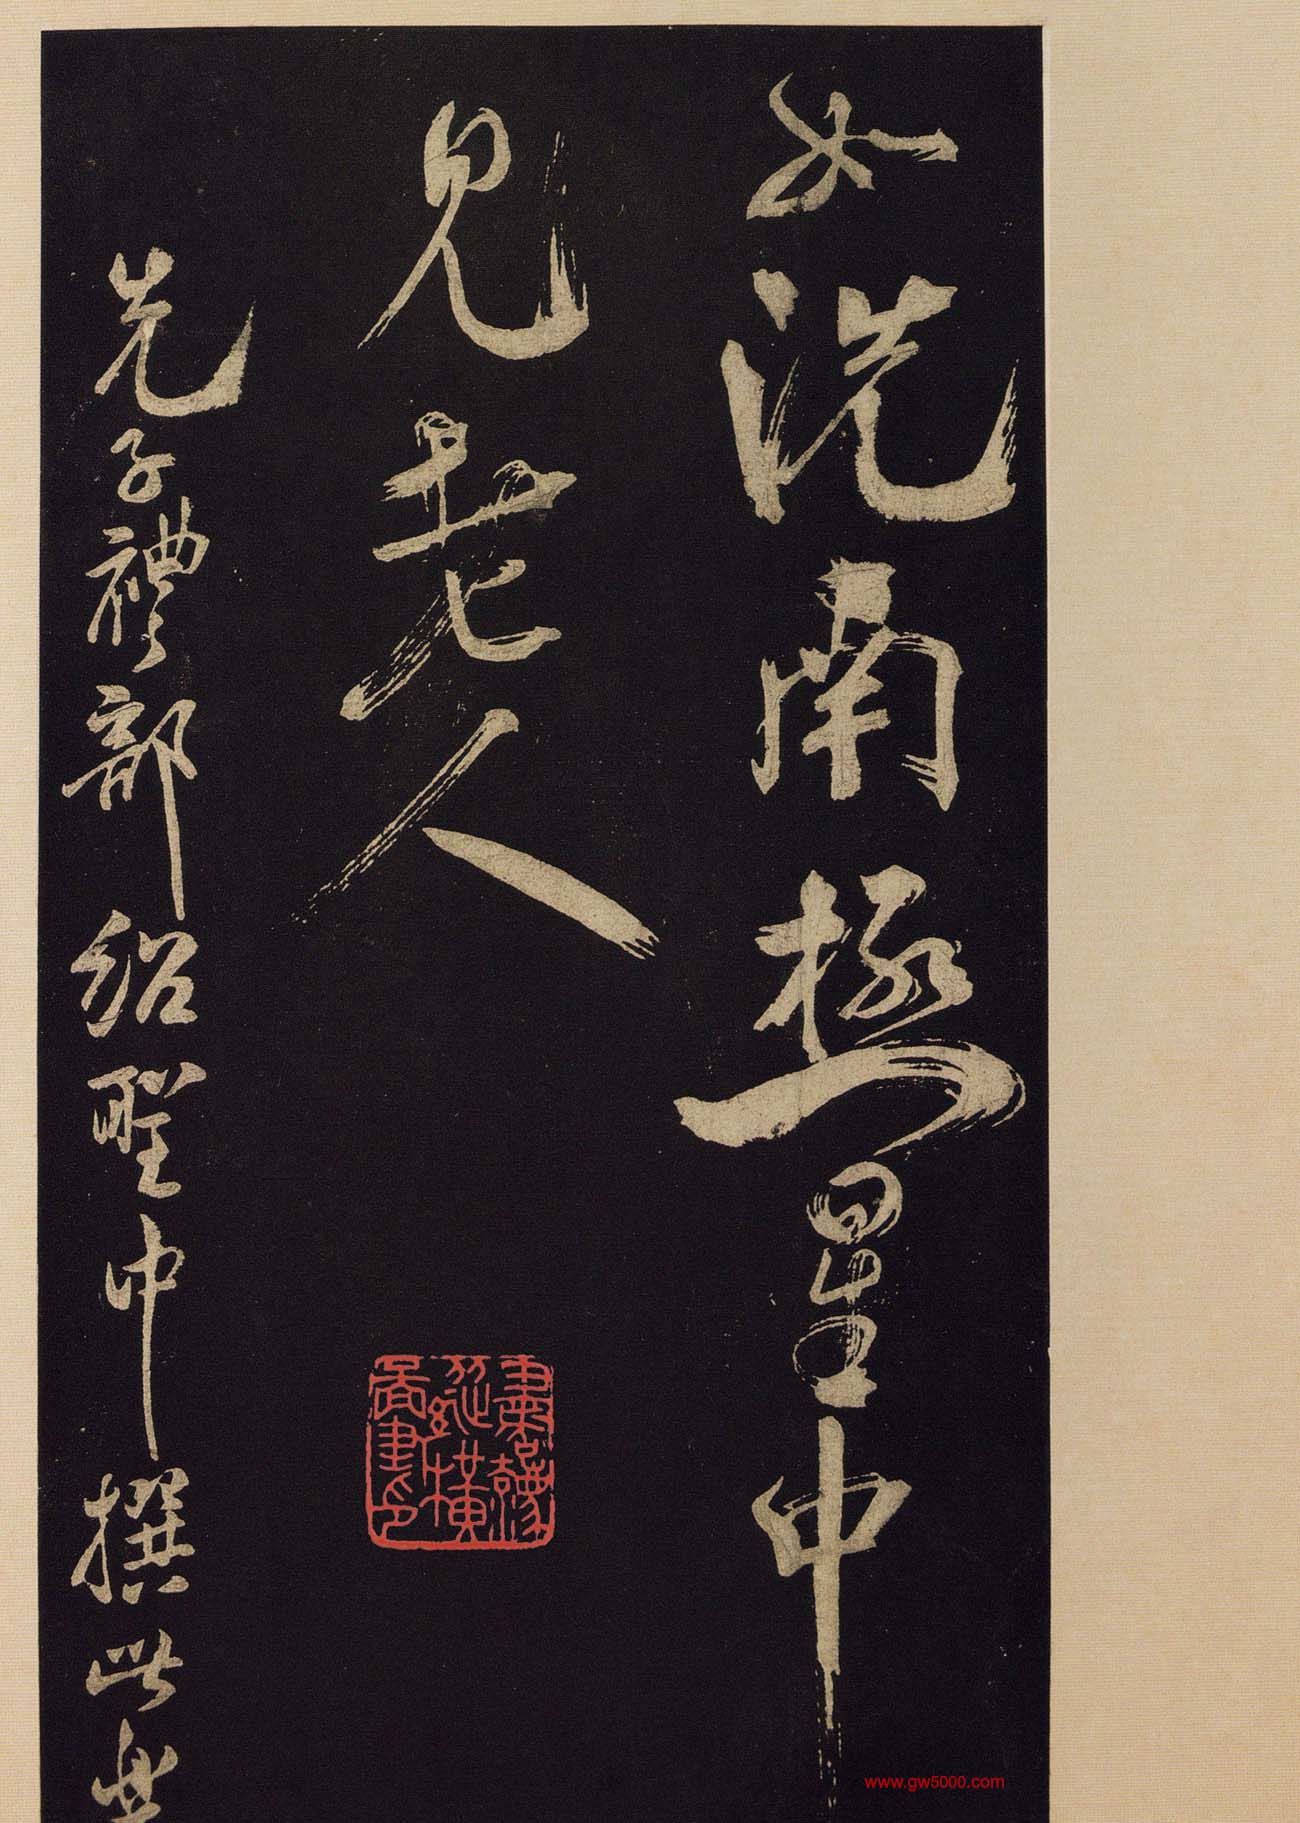 如洗南極星中
見老人
先子禮部紹聖中撰此
縱橫
圖書印
www.gw5000.com